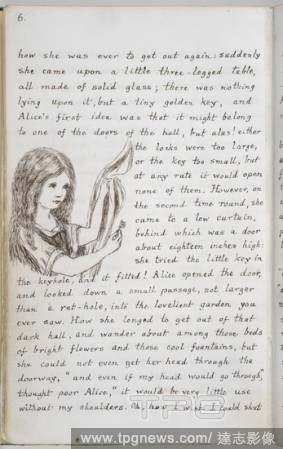 6.
how she was ever to get out again: suddenly
she came upon a little three-legged table,
all made of solid glass; there was nothing
lying upon it, but a tiny golden key, and
Alice's first idea was that it might belong
to one of the doors of the hall, but alas! either
the locks were too large,
or the key too small, but
at any rate it would open
none of them. However, on
the second time round, she
came to a low curtain,
behind which was a door
about eighteen inches high:
she tried the little key in
the keyhole, and it fitted! Alice opened the door,
and looked down a small passage, not larger
than a rat-hole, into the loveliest garden you
ever saw. How she longed to get out of that
dark hall, and wander about among those beds
of bright flowers and those cool fountains, but
she could not even get her head through the
doorway, "and even if my head would go through,"
thought poor Alice, "it would be very little use
without my shoulders. Oh, how I wish I could shut
TPG
www.tpgnews.com/達志影像